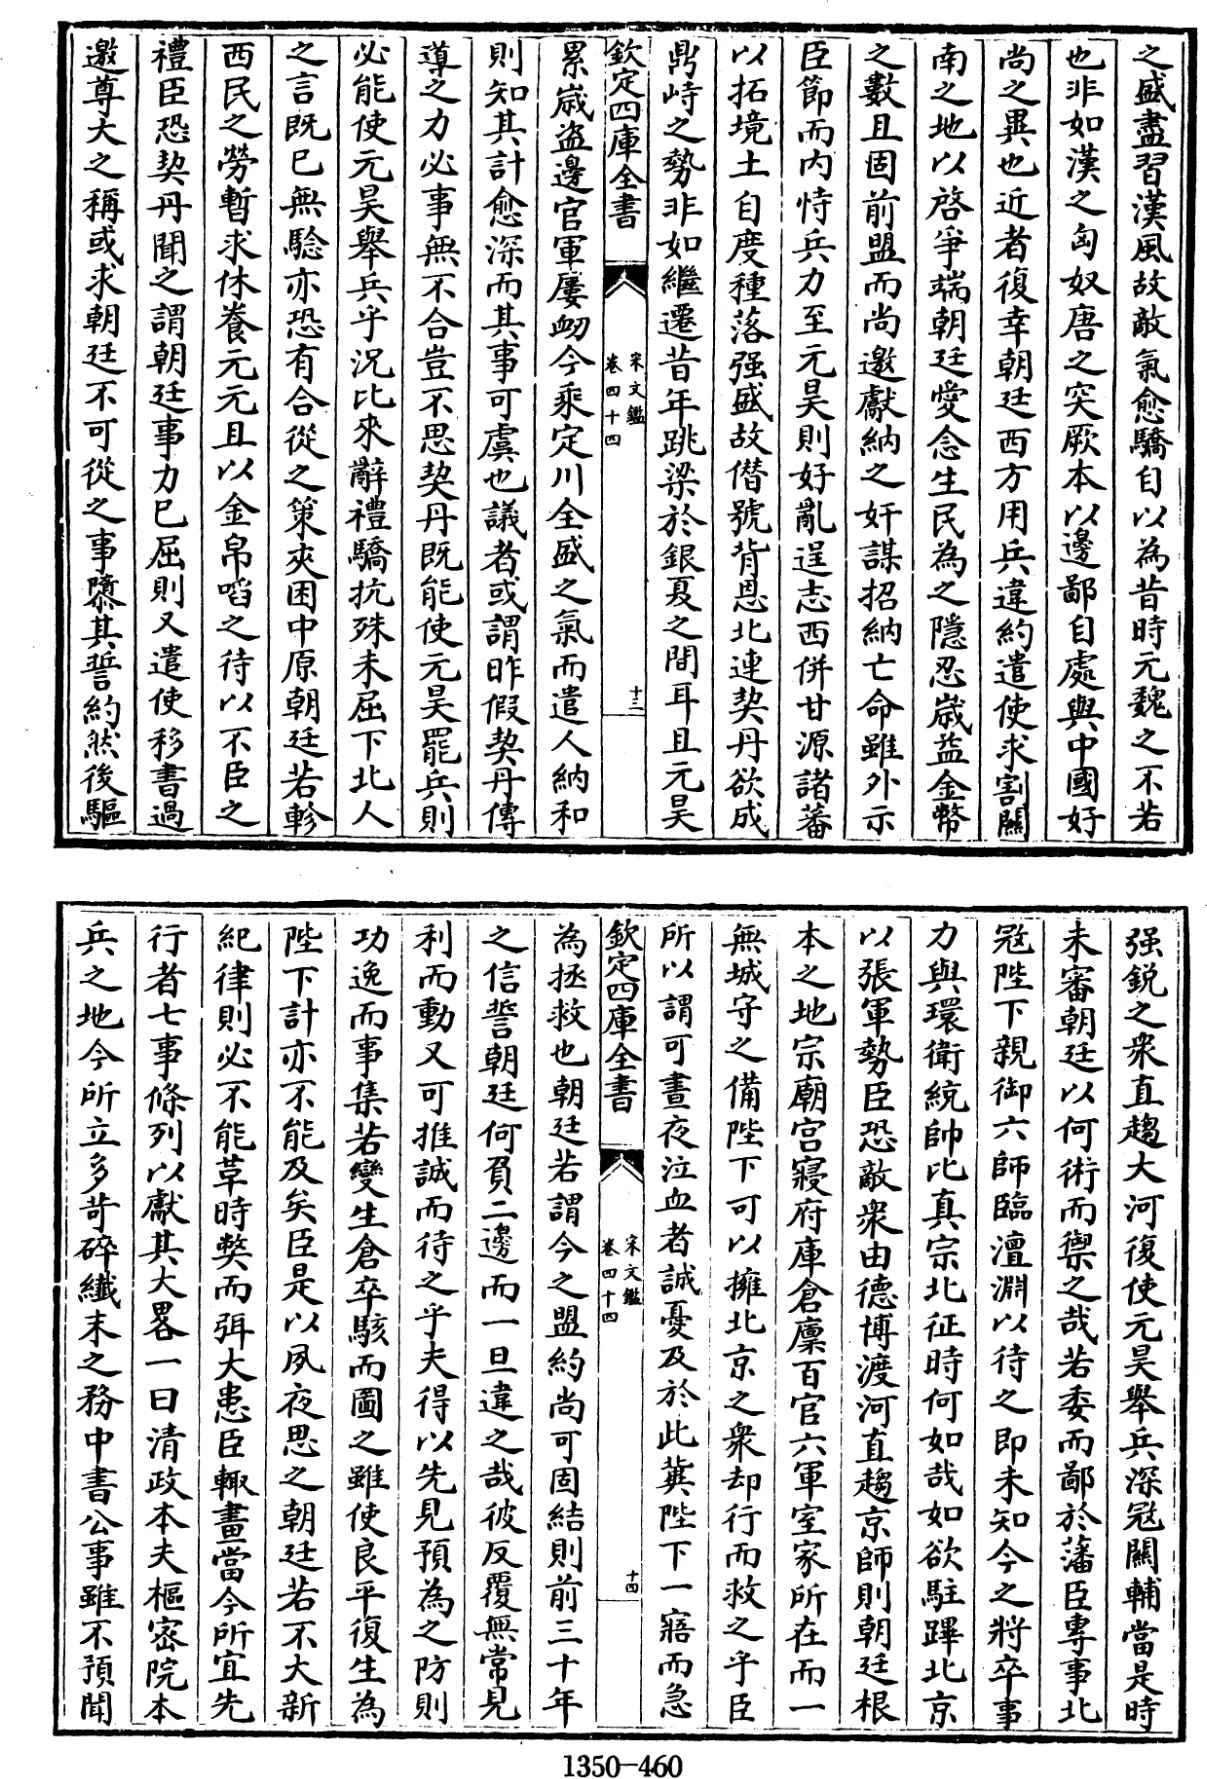 之盛盡習漢風故敵氣愈驕自以為昔時元魏之不若
也非如漢之匈奴唐之突厥本以邊鄙自處與中國好
尚之異也近者復幸朝廷西方用兵違約遣使求割關
南之地以啓爭端朝廷愛念生民為之隱忍嵗益金幣
之數且固前盟而尚邀獻納之奸謀招納亡命雖外示
臣節而内恃兵力至元昊則好亂逞志西併甘源諸蕃
以拓境土自度種落强盛故僭號背恩北連契丹欲成
鼎峙之勢非如繼遷昔年跳梁於銀夏之間耳且元昊
欽定四庫全書
宋文鑑
卷四十四
十三
累嵗盜邊官軍屢衂今乘定川全盛之氣而遣人納和
則知其計愈深而其事可虞也議者或謂昨假契丹傳
導之力必事無不合豈不思契丹既能使元昊罷兵則
必能使元昊舉兵乎況比來辭禮驕抗殊未屈下北人
之言既已無驗亦恐有合從之策夾困中原朝廷若軫
西民之勞暫求休養元元且以金帛啗之待以不臣之
禮臣恐契丹聞之謂朝廷事力已屈則又遣使移書過
邀尊大之稱或求朝廷不可從之事隳其誓約然後驅
强鋭之衆直趨大河復使元昊舉兵深冦關輔當是時
未審朝廷以何術而禦之哉若委而鄙於藩臣專事北
冦陛下親御六師臨澶淵以待之即未知今之將卒事
力與環衛統帥比真宗北征時何如哉如欲駐蹕北京
以張軍勢臣恐敵衆由德博渡河直趨京師則朝廷根
本之地宗廟宫寢府庫倉廪百官六軍室家所在而一
無城守之備陛下可以擁北京之衆却行而救之乎臣
所以謂可晝夜泣血者誠憂及於此冀陛下一寤而急
欽定四庫全書
宋文鑑
卷四十四
十四
為拯救也朝廷若謂今之盟約尚可固結則前三十年
之信誓朝廷何負二邊而一旦違之哉彼反覆無常見
利而動又可推誠而待之乎夫得以先見預為之防則
功逸而事集若變生倉卒駭而圖之雖使良平復生為
陛下計亦不能及矣臣是以夙夜思之朝廷若不大新
紀律則必不能革時弊而弭大患臣輙畫當今所宜先
行者七事條列以獻其大畧一曰清政本夫樞宻院本
兵之地今所立多苛碎纎末之務中書公事雖不預聞
1350-460